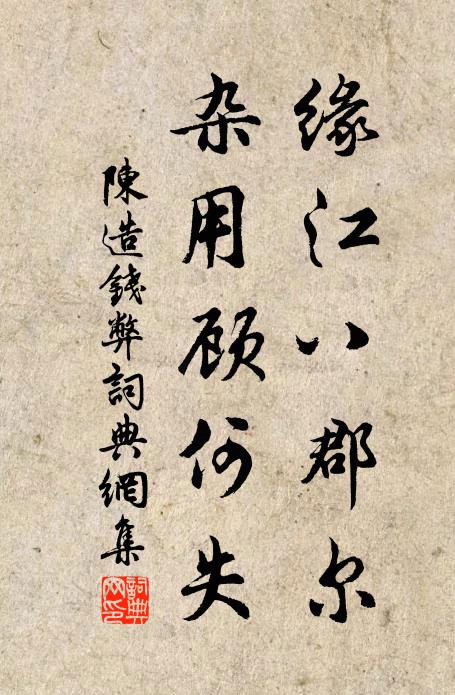 缘江八郡尔
杂用顾何失
陳造錢弊詞典網集
詞典網印